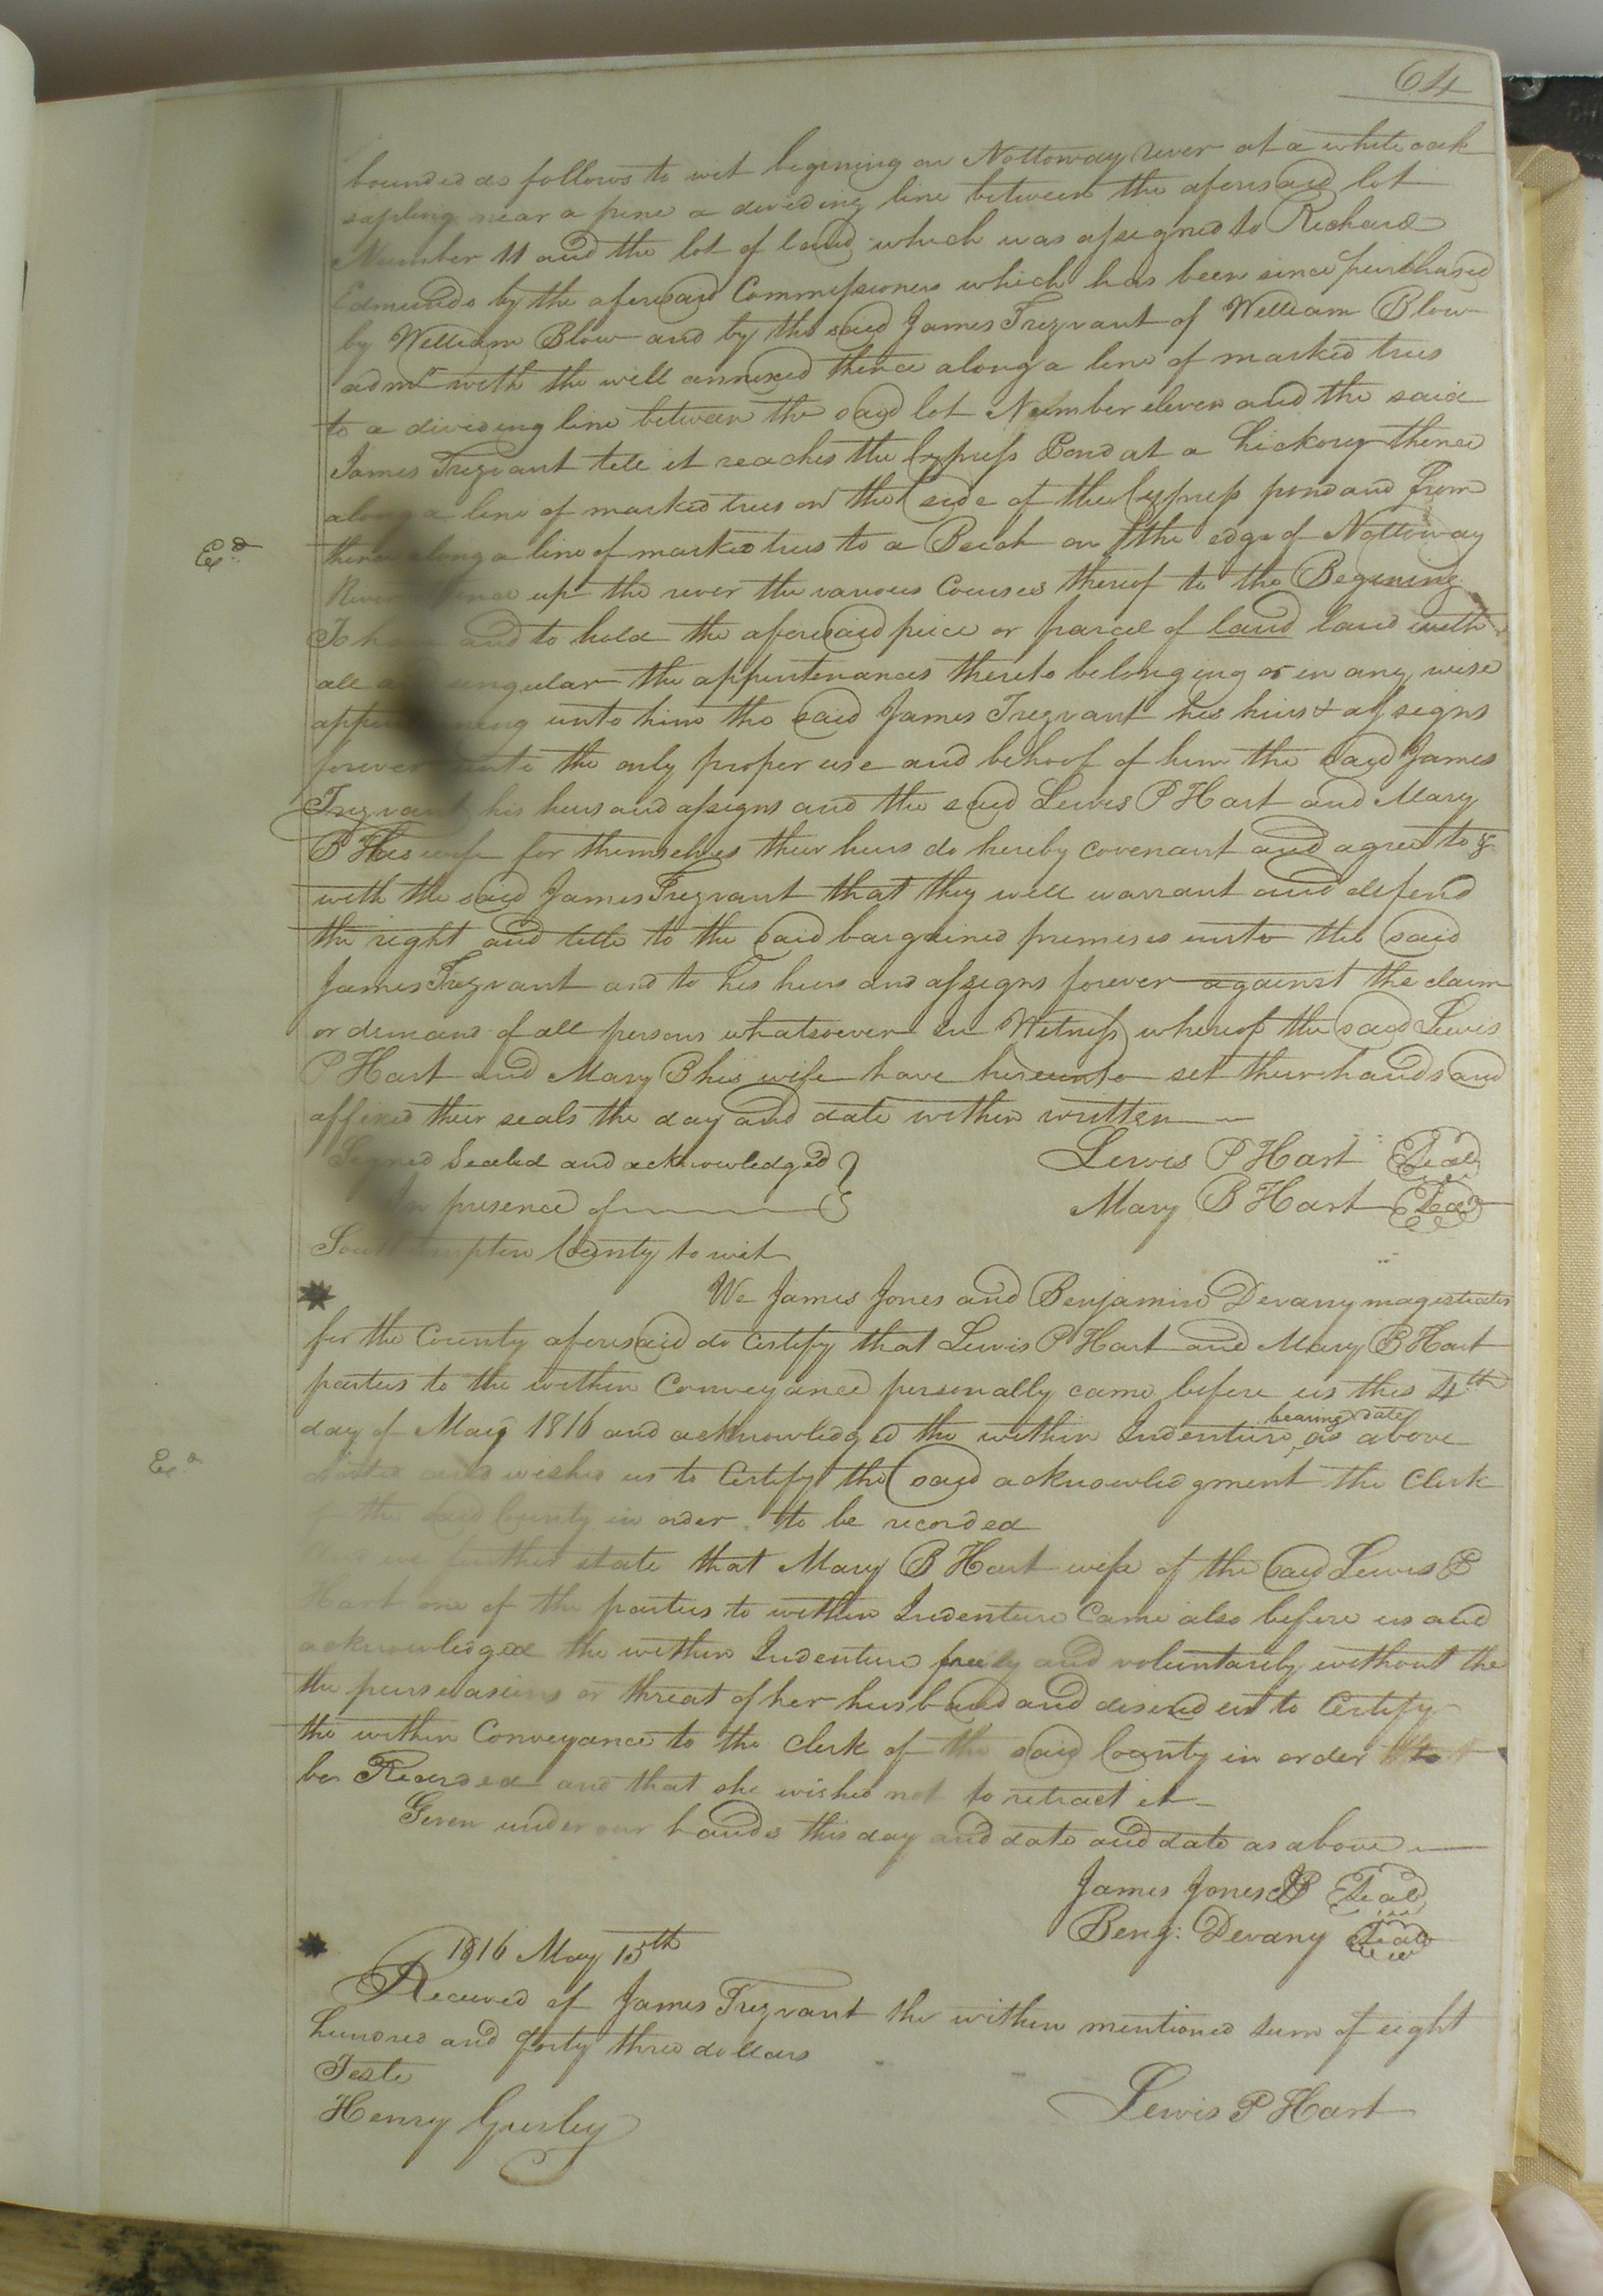 64
bounded as follows to wit begining on Nottoway river at a white oak
sapling near a pine a dividing line between the aforesaid lot
Number 11 and the lot of land which was assigned to Richard
Edmunds by the aforesaid Commissioners which has been since purchased
by William Blow and by the said James Trezvant of William Blow
admr with the will annexed thence along a line of marked trees
to a dividing line between the said lot Number eleven and the said
James Trezvant till it reaches the Cypress Pond at a hickory thence
along a line of marked trees on the side of the Cypress pond and from
thence along a line of marked trees to a Beich on the edge of Nottoway
River thence up the river the various Courses thereof to the Begining
To have and to hold the aforesaid peice or parcel of land land with
all and singular the appurtenances thereto belonging or in any wise
appertaining unto him the said James Trezvant his heirs & assigns
forever unto the only proper use and behoof of him the said James
Trezvant his heirs and assigns and the said Lewis P Hart and Mary
B His wife for themselves their heirs do hereby covenant and agree to &
with the said James Trezvant that they will warrant and defend
the right and title to the said bargained premises unto the said
James Trezvant and to his heirs and assigns forever against the claim
or demand of all persons whatsoever In Witness whereof the said Lewis
P Hart and Mary B his wife have hereunto set their hands and
affixed their seals the day and date within written
Signed Sealed and acknowledged } Lewis P Hart Seal
In presence of } Mary B Hart Seal
Southampton County to wit
We James Jones and Benjamin Devany magistrates
for the County aforesaid do Certify that Lewis P Hart and Mary B Hart
parties to the within Conveyance personally came before us this 4th
day of May 1816 and acknowledged the within Indenture bearing date as above
and wished us to Certify the said acknowledgment the Clerk
of the said County in order to be recorded
And we further state that Mary B Hart wife of the said Lewis P
Hart one of the parties to within Indenture Came also before us and
acknowledged the within Indenture freely and voluntarily without the
the perswasions or threat of her husband and desired us to Certify
the within Conveyance to the Clerk of the said County in order
be Recorded and that she wished not to retract it
Given under our hands this day and date and date as above
James Jones JP Seal
Benj: Devany Seal
1816 May 15th
Received of James Trezvant the within mentioned sum of eight
hundred and forty three dollars
Teste
Henry Gurley
Lewis P Hart
Ex.d
Ex.d